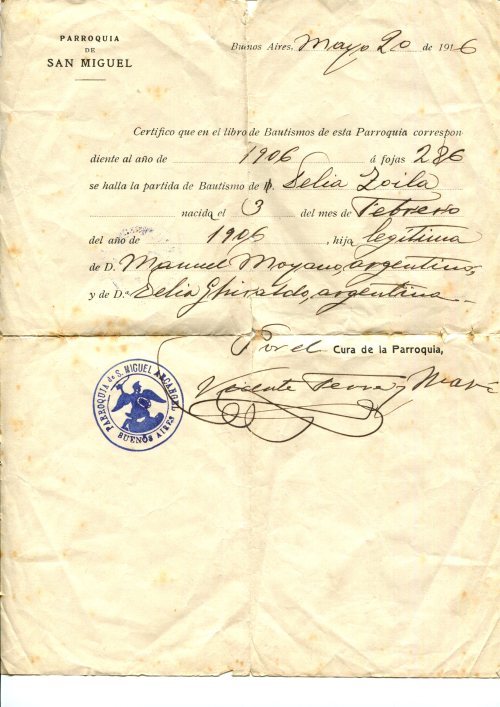 PARROQUIA
DE
SAN MIGUEL
Buenos Aires, Mayo 20 de 1916
Certifico que en el libro de Bautismos de esta Parroquia correspon
diente al año de 1906 á fojas 286
se halla la partida de Bautismo de D. Delia Zoila
nacida el 3 del mes de Febrero
del año de 1906, hija legítima
de D. Manuel Moyano, argentino,
y de Da. Delia Ghiraldo, argentina
Por el Cura de la Parroquia,
Vicente
PARROQUIA de S. MIGUEL ARCANGEL
BUENOS AIRES